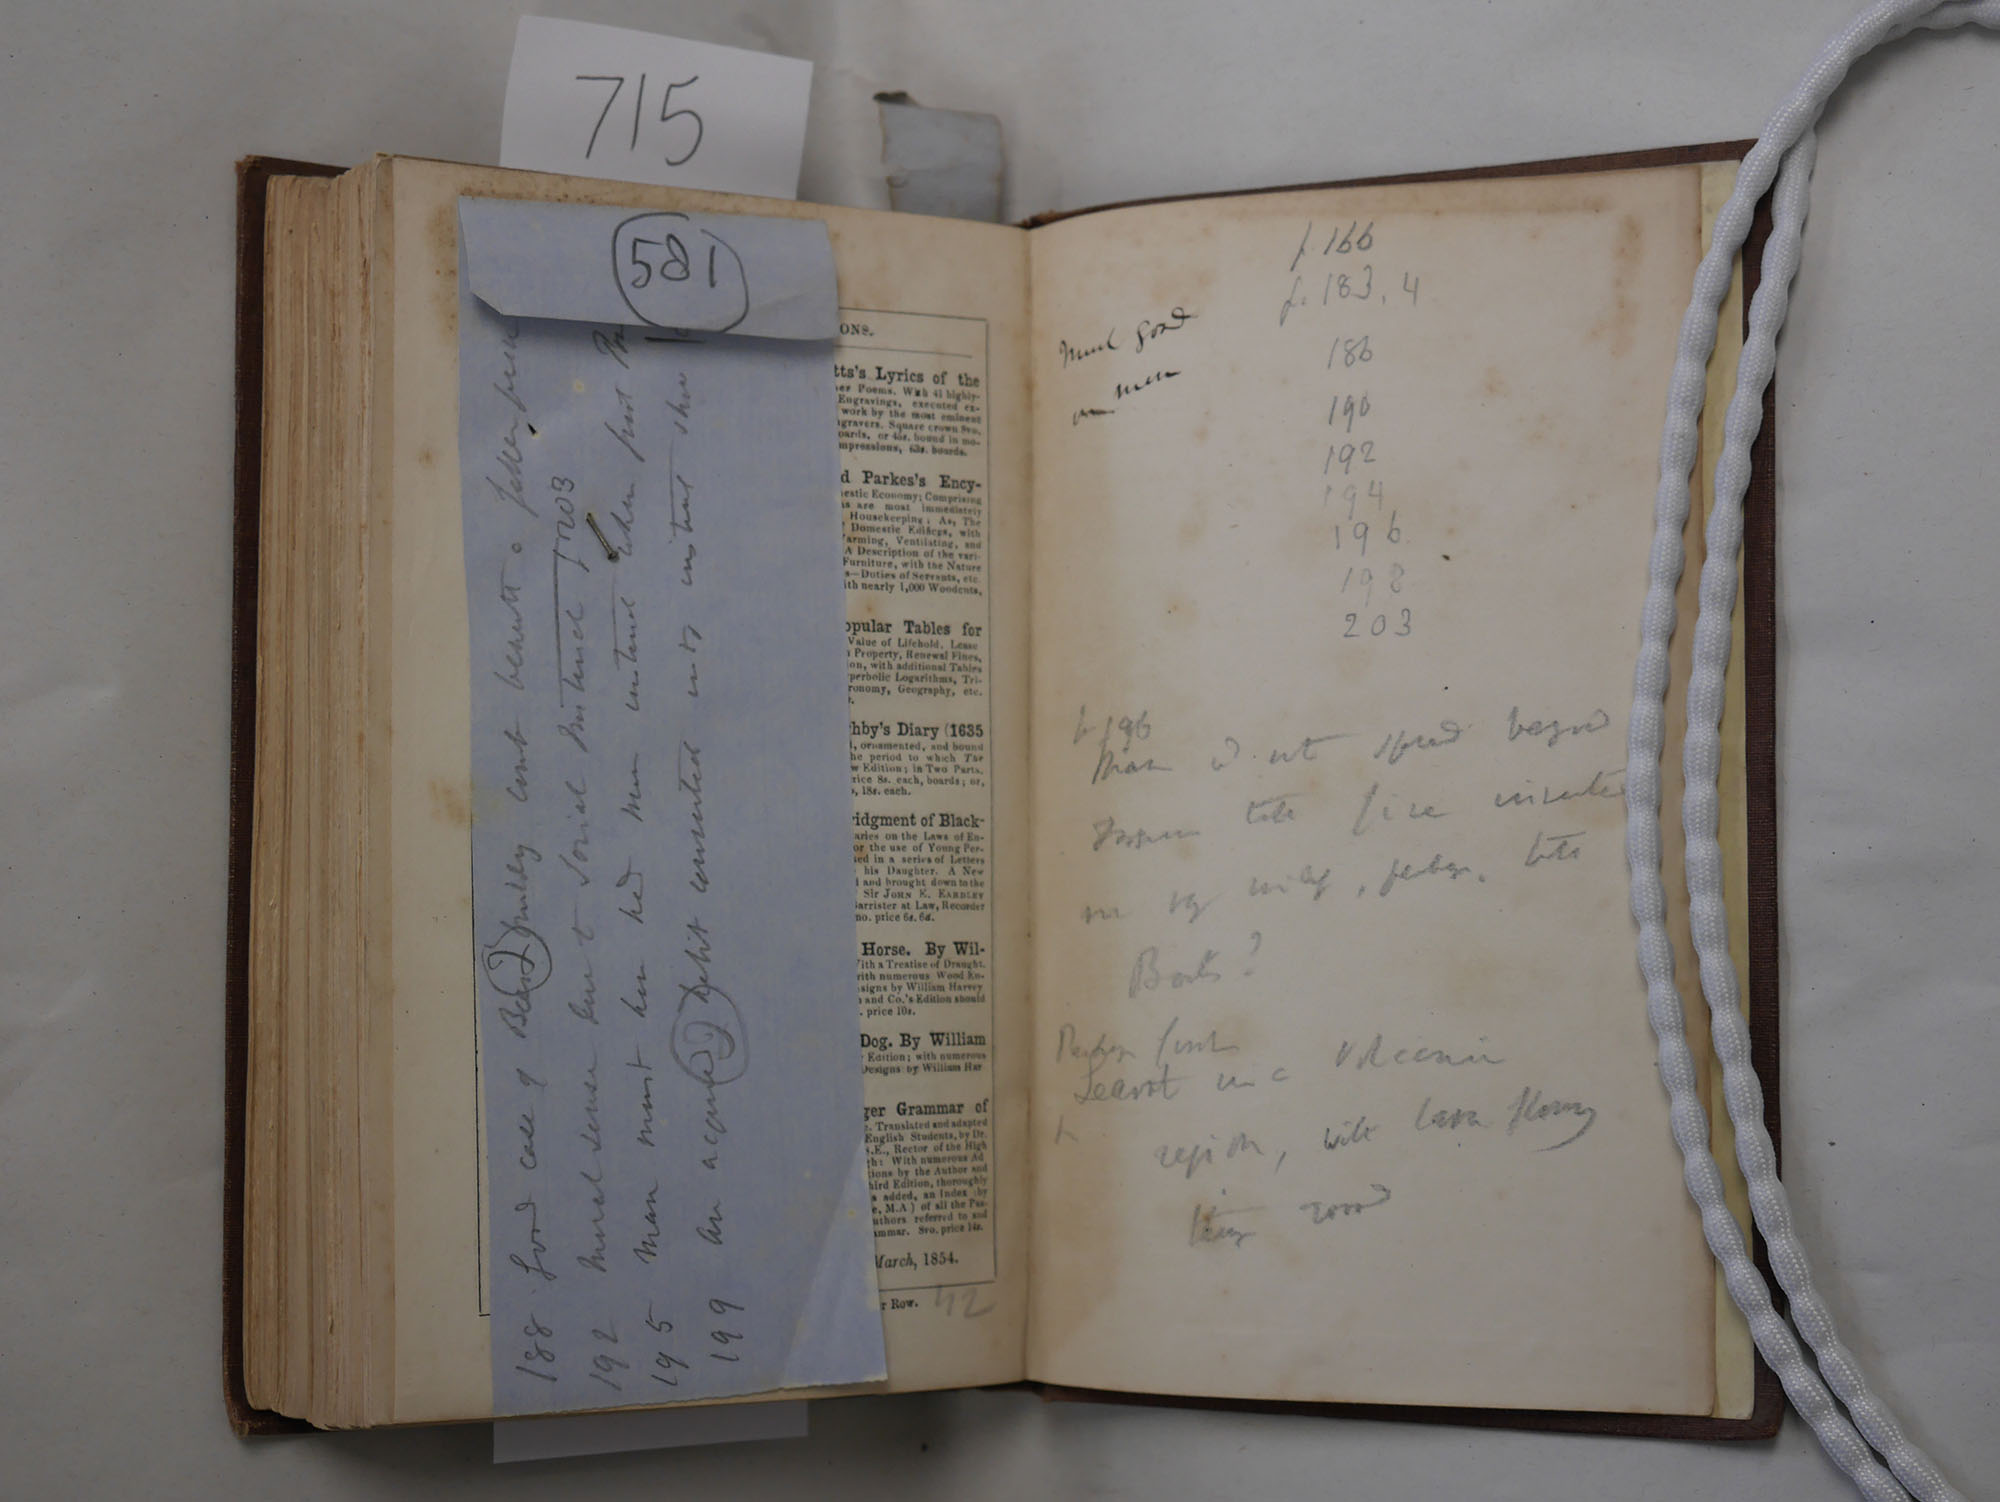 715
581
188 Good case of Bears
192 Moral sense due to Social Instinct p 203
195 Man must have had instinct when first
199 an acquired habit converted into instinct
ONS.
tts's Lyrics of the
er Poems. With 41 highly-
Engravings, executed ex-
work by the most eminent
ngravers. Square crown 8vo.
boards, or 45s. bound in mo-
mpressions, 63s. boards.
d Parkes's Ency-
mestic Economy; Comprising
as are most immediately
Housekeeping; As, The
Domestic Edifices, with
Varming, Ventilating, and
A Description of the vari-
Furniture, with the Nature
s—Duties of Servants, etc.
ith nearly 1,000 Woodcuts,
opular Tables for
Value of Lifehold. Lease
h Property, Renewal Fines,
ion, with additional Tables
yperbolic Logarithms, Tri-
ronomy, Geography, etc.
s.
hby's Diary (1635
l, ornamented, and bound
he period to which The
w Edition; in Two Parts.
rice 8s. each, boards; or,
, 18s. each.
ridgment of Black-
aries on the Laws of En-
or the use of Young Per-
sed in a series of Letters
his Daughter. A New
and brought down to the
Sir JOHN E. EARDLEY
Barrister at Law, Recorder
no. price 6s. 6d.
Horse. By Wil-
With a Treatise of Draught.
with numerous Wood En-
signs by William Harvey
n and Co.'s Edition should
. price 10s.
Dog. By William
Edition; with numerous
Designs by William Har
ger Grammar of
e. Translated and adapted
English Students, by Dr.
S.E., Rector of the High
gh: With numerous Ad
tions by the Author and
hird Edition, thoroughly
s added, an Index (by
e, M.A) of all the Pas-
uthors referred to and
ammar. 8vo. price 14s.
March, 1854.
r Row.
42
p. 166
p. 183. 4
Much good
on men
186
190
192
194
196
198
203
p 196
Man d. not spread beyond
till fire invented
perhaps, till
Boats?
Perhaps first
learnt in a volcanic
region, with lava flowing
thing wood